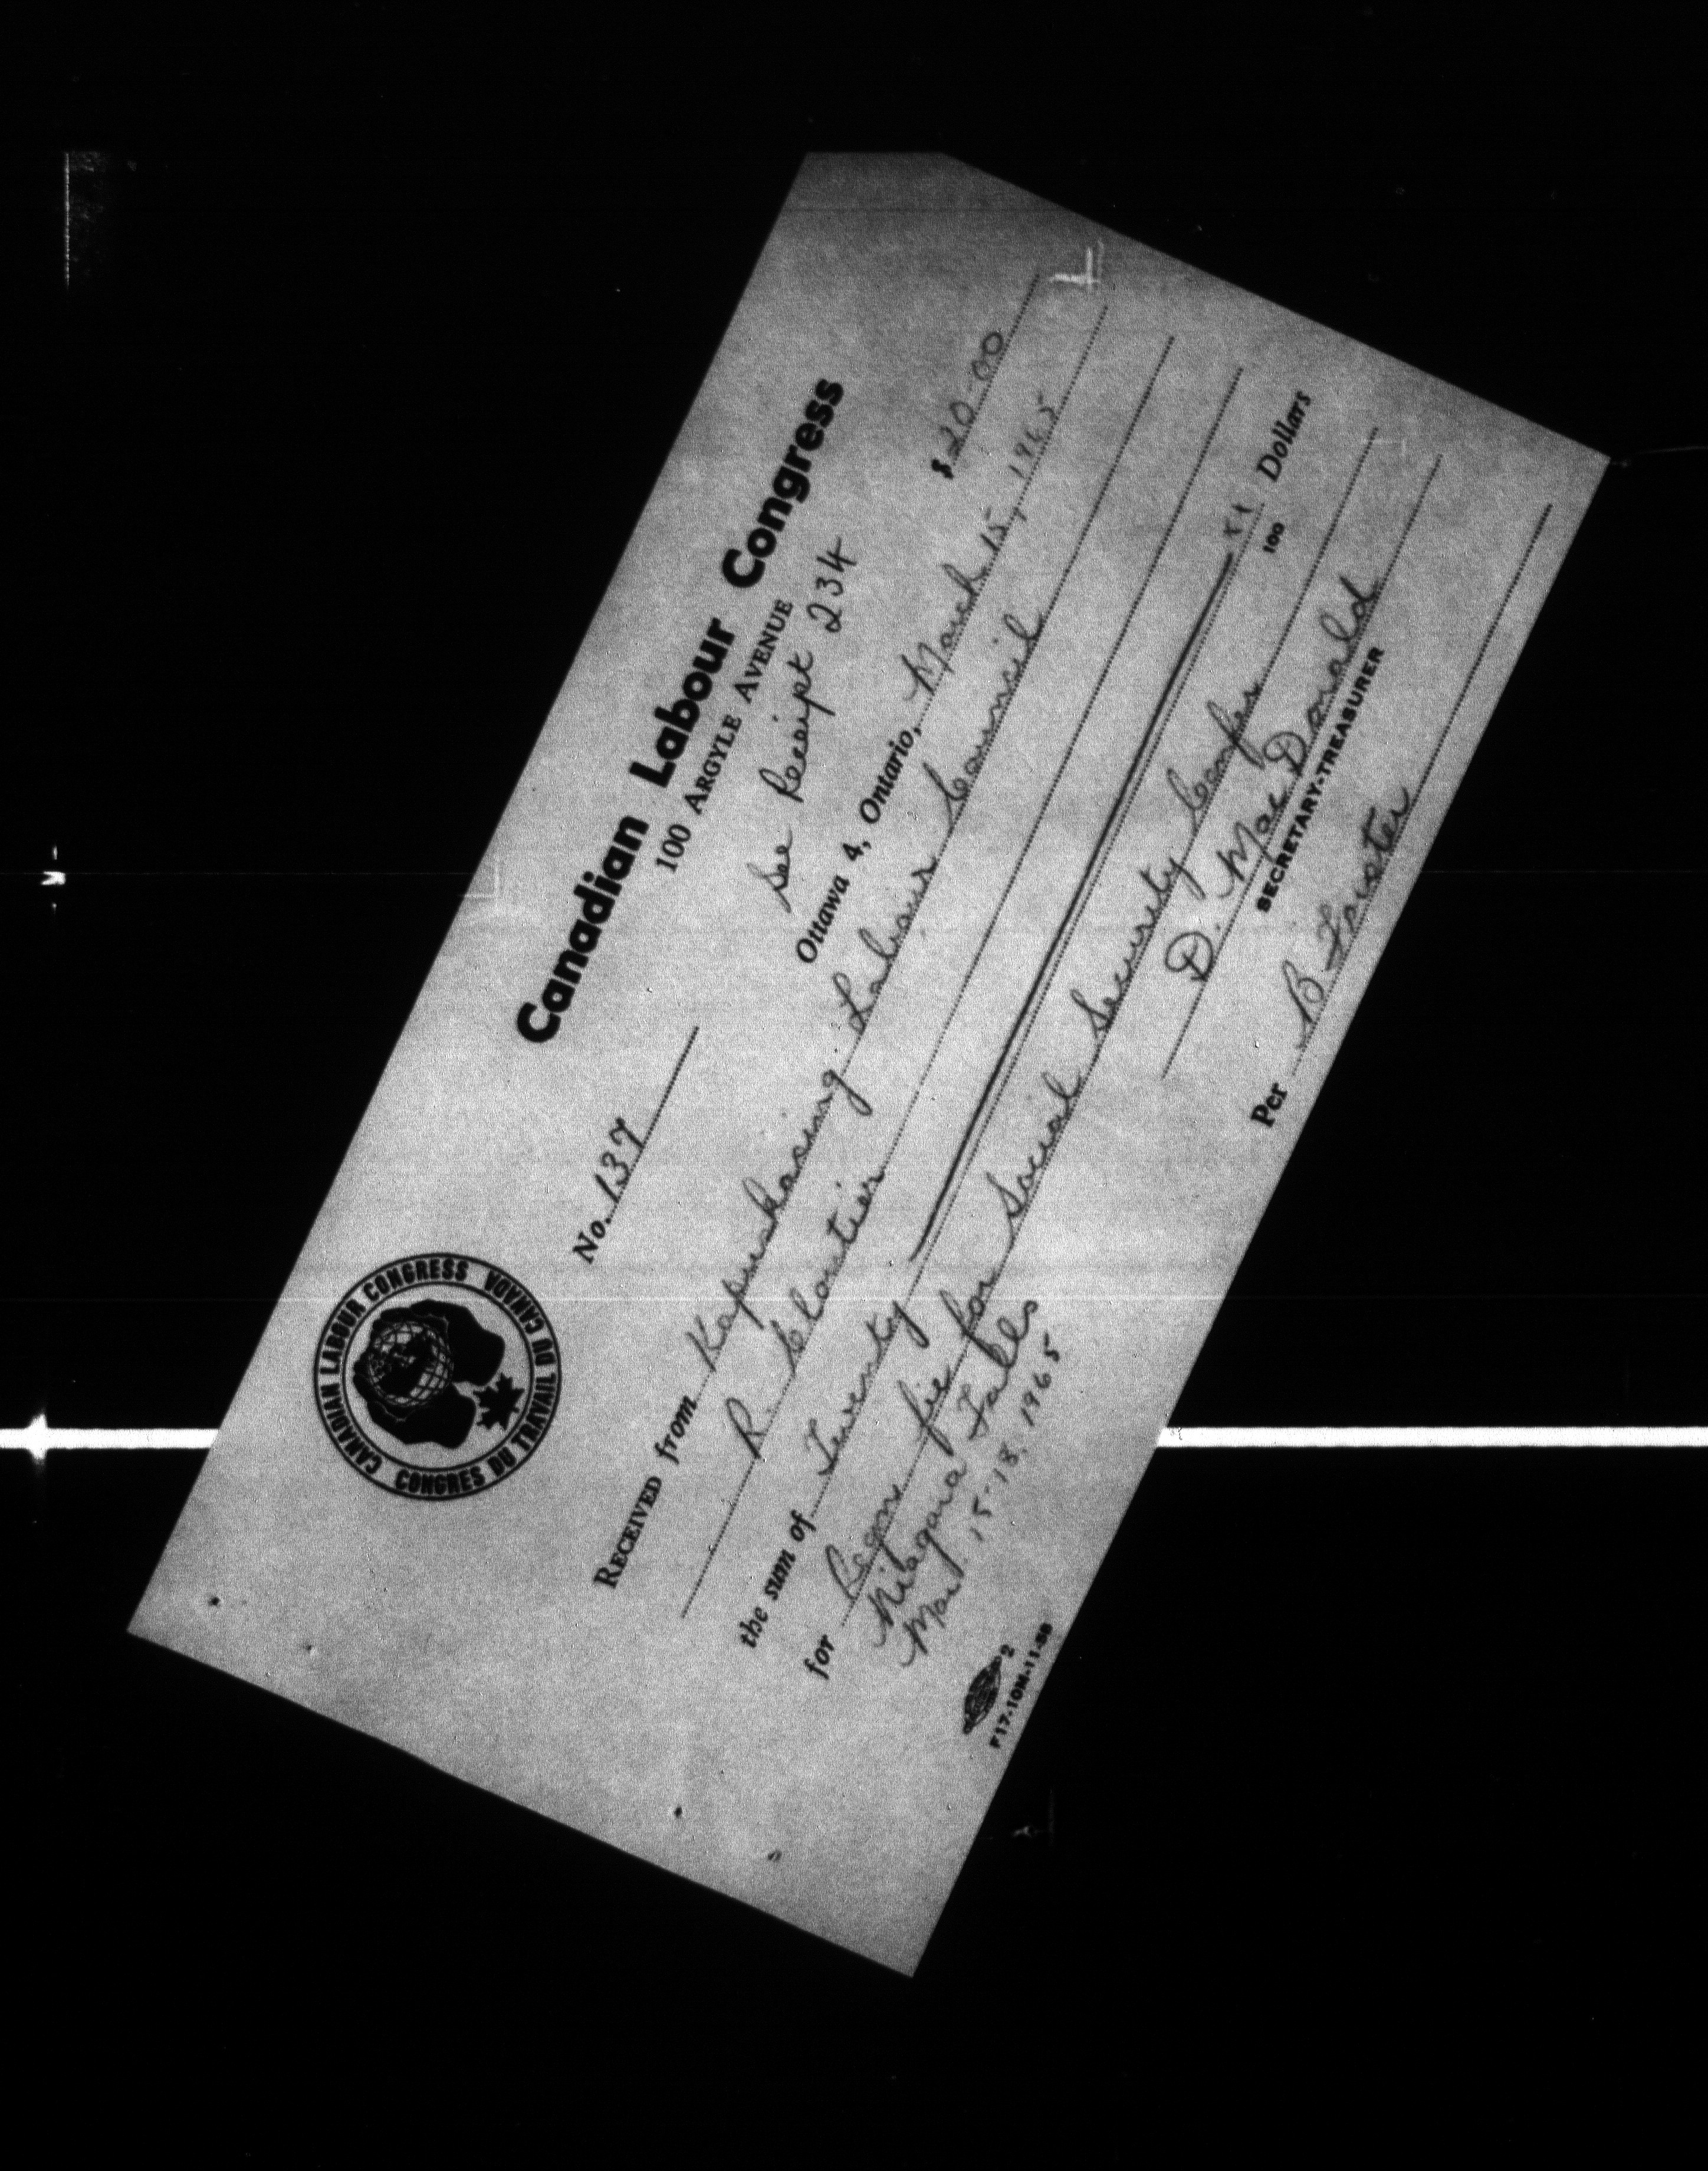 Canadian Labour Congress
100 ARGYLE AVENUE
CANADIAN LABOUR CONGRESS CONGRES DU TRAVAIL DU CANADA
See Receipt 234
No. 137
$20.00
Ottawa 4, Ontario, March 15, 1965
RECEIVED from Kapuskasing Labour Council
R. Cloutier
the sum of Twenty xx/100 Dollars
for Regn fee for Social Security Confer
Niagara Falls
Mar. 15-18, 1965
D. MacDonald
SECRETARY-TREASURER
Per B Foster
2
F17-10M-11-58